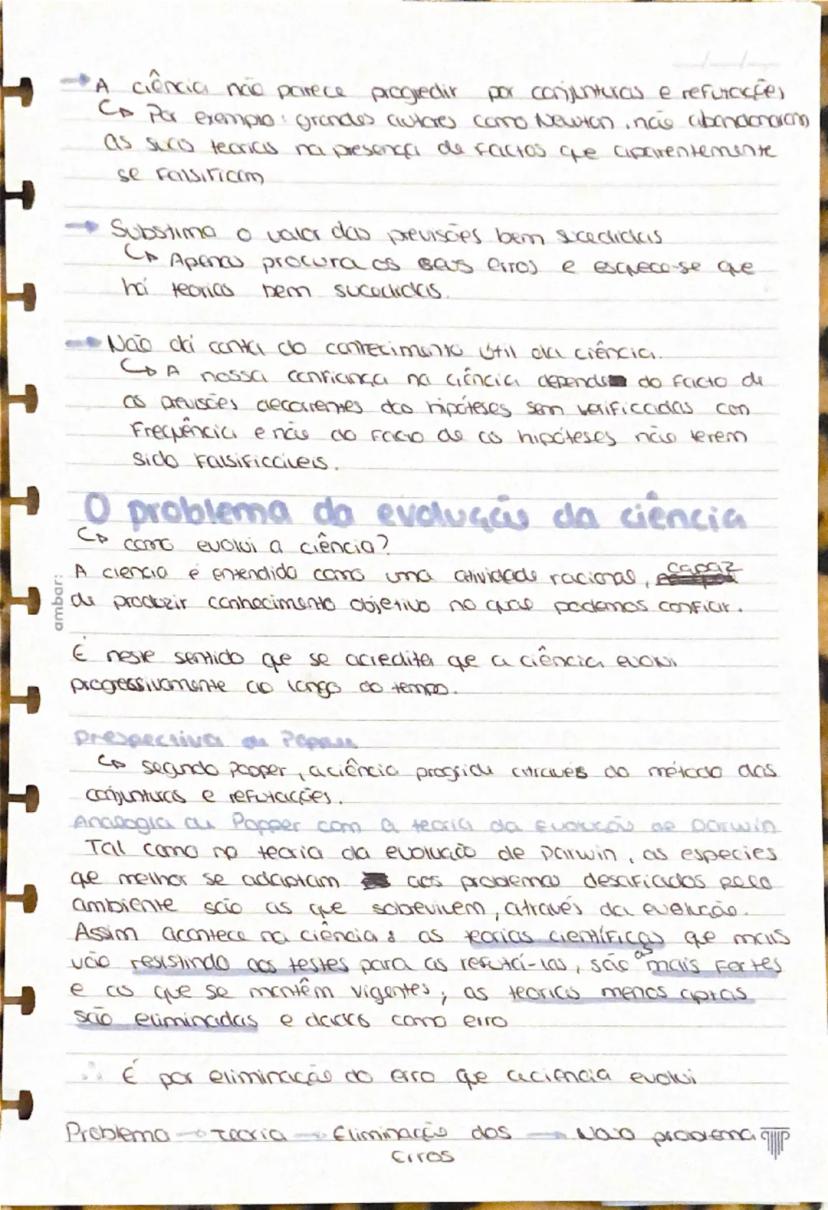 → A ciência não parece progredir por conjunturas e refutações
↳ Por exemplo: grandes autores como Newton, não abandonaram
as suas teorias na presença de factos que aparentemente
se falsificam
→ Substima o valor das previsões bem sucedidas
↳ Apenas procura os seus erros e esquece-se que
há teorias bem sucedidas.
→ Não dá conta do conhecimento útil da ciência.
↳ A nossa confiança na ciência depende do facto de
as previsões decorrentes das hipóteses sem verificadas con
frequência e não do facto de as hipóteses não terem
sido falsificáveis.
O problema da evolução da ciência
↳ como evolui a ciência?
A ciencia é entendida como uma atividade racional, capaz
de produzir conhecimento objetivo no qual podemos confiar.
É neste sentido que se acredita que a ciência evolui
progressivamente ao longo do tempo.
Prespectiva de Popper
↳ segundo Popper, a ciência progride através do método das
conjunturas e refutações.
Analogia de Popper com a teoria da evolução de Darwin
Tal como na teoria da evolução de Darwin, as especies
que melhor se adaptam aos problemas desafiados pelo
ambiente são as que sobrevivem, através da evolução.
Assim acontece na ciência: as teorias científicas que mais
vão resistindo aos testes para as refutá-las, são as mais fortes
e as que se mantêm vigentes; as teorias menos aptas
são eliminadas e dadas como erro
∴ É por eliminação do erro que a ciência evolui
Problema → Teoria → Eliminação dos → Novo problema
erros
ambar: